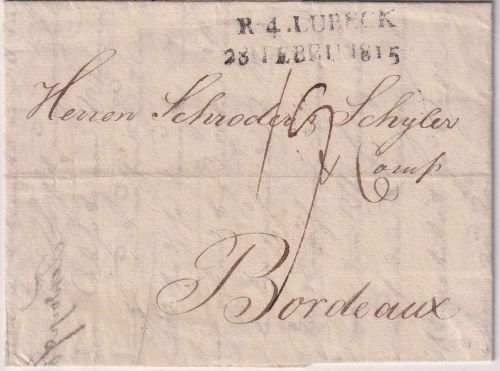 R.4.LUBECK
28 FEBRU 1815
Herren Schroder & Schyler
& Comp
Bordeaux